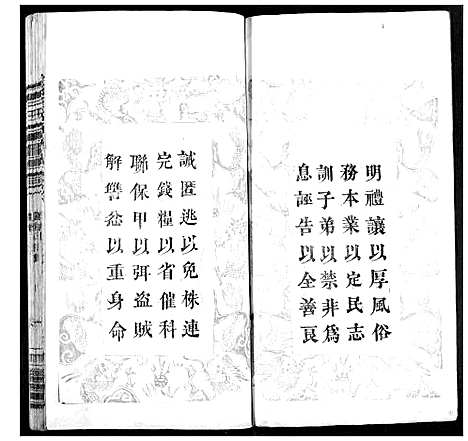 明禮讓以厚風俗
務本業以定民志
訓子弟以禁非為
息誣告以全善良
誠匿逃以免株連
完錢糧以省催科
聯保甲以弭盜賊
解讐忿以重身命